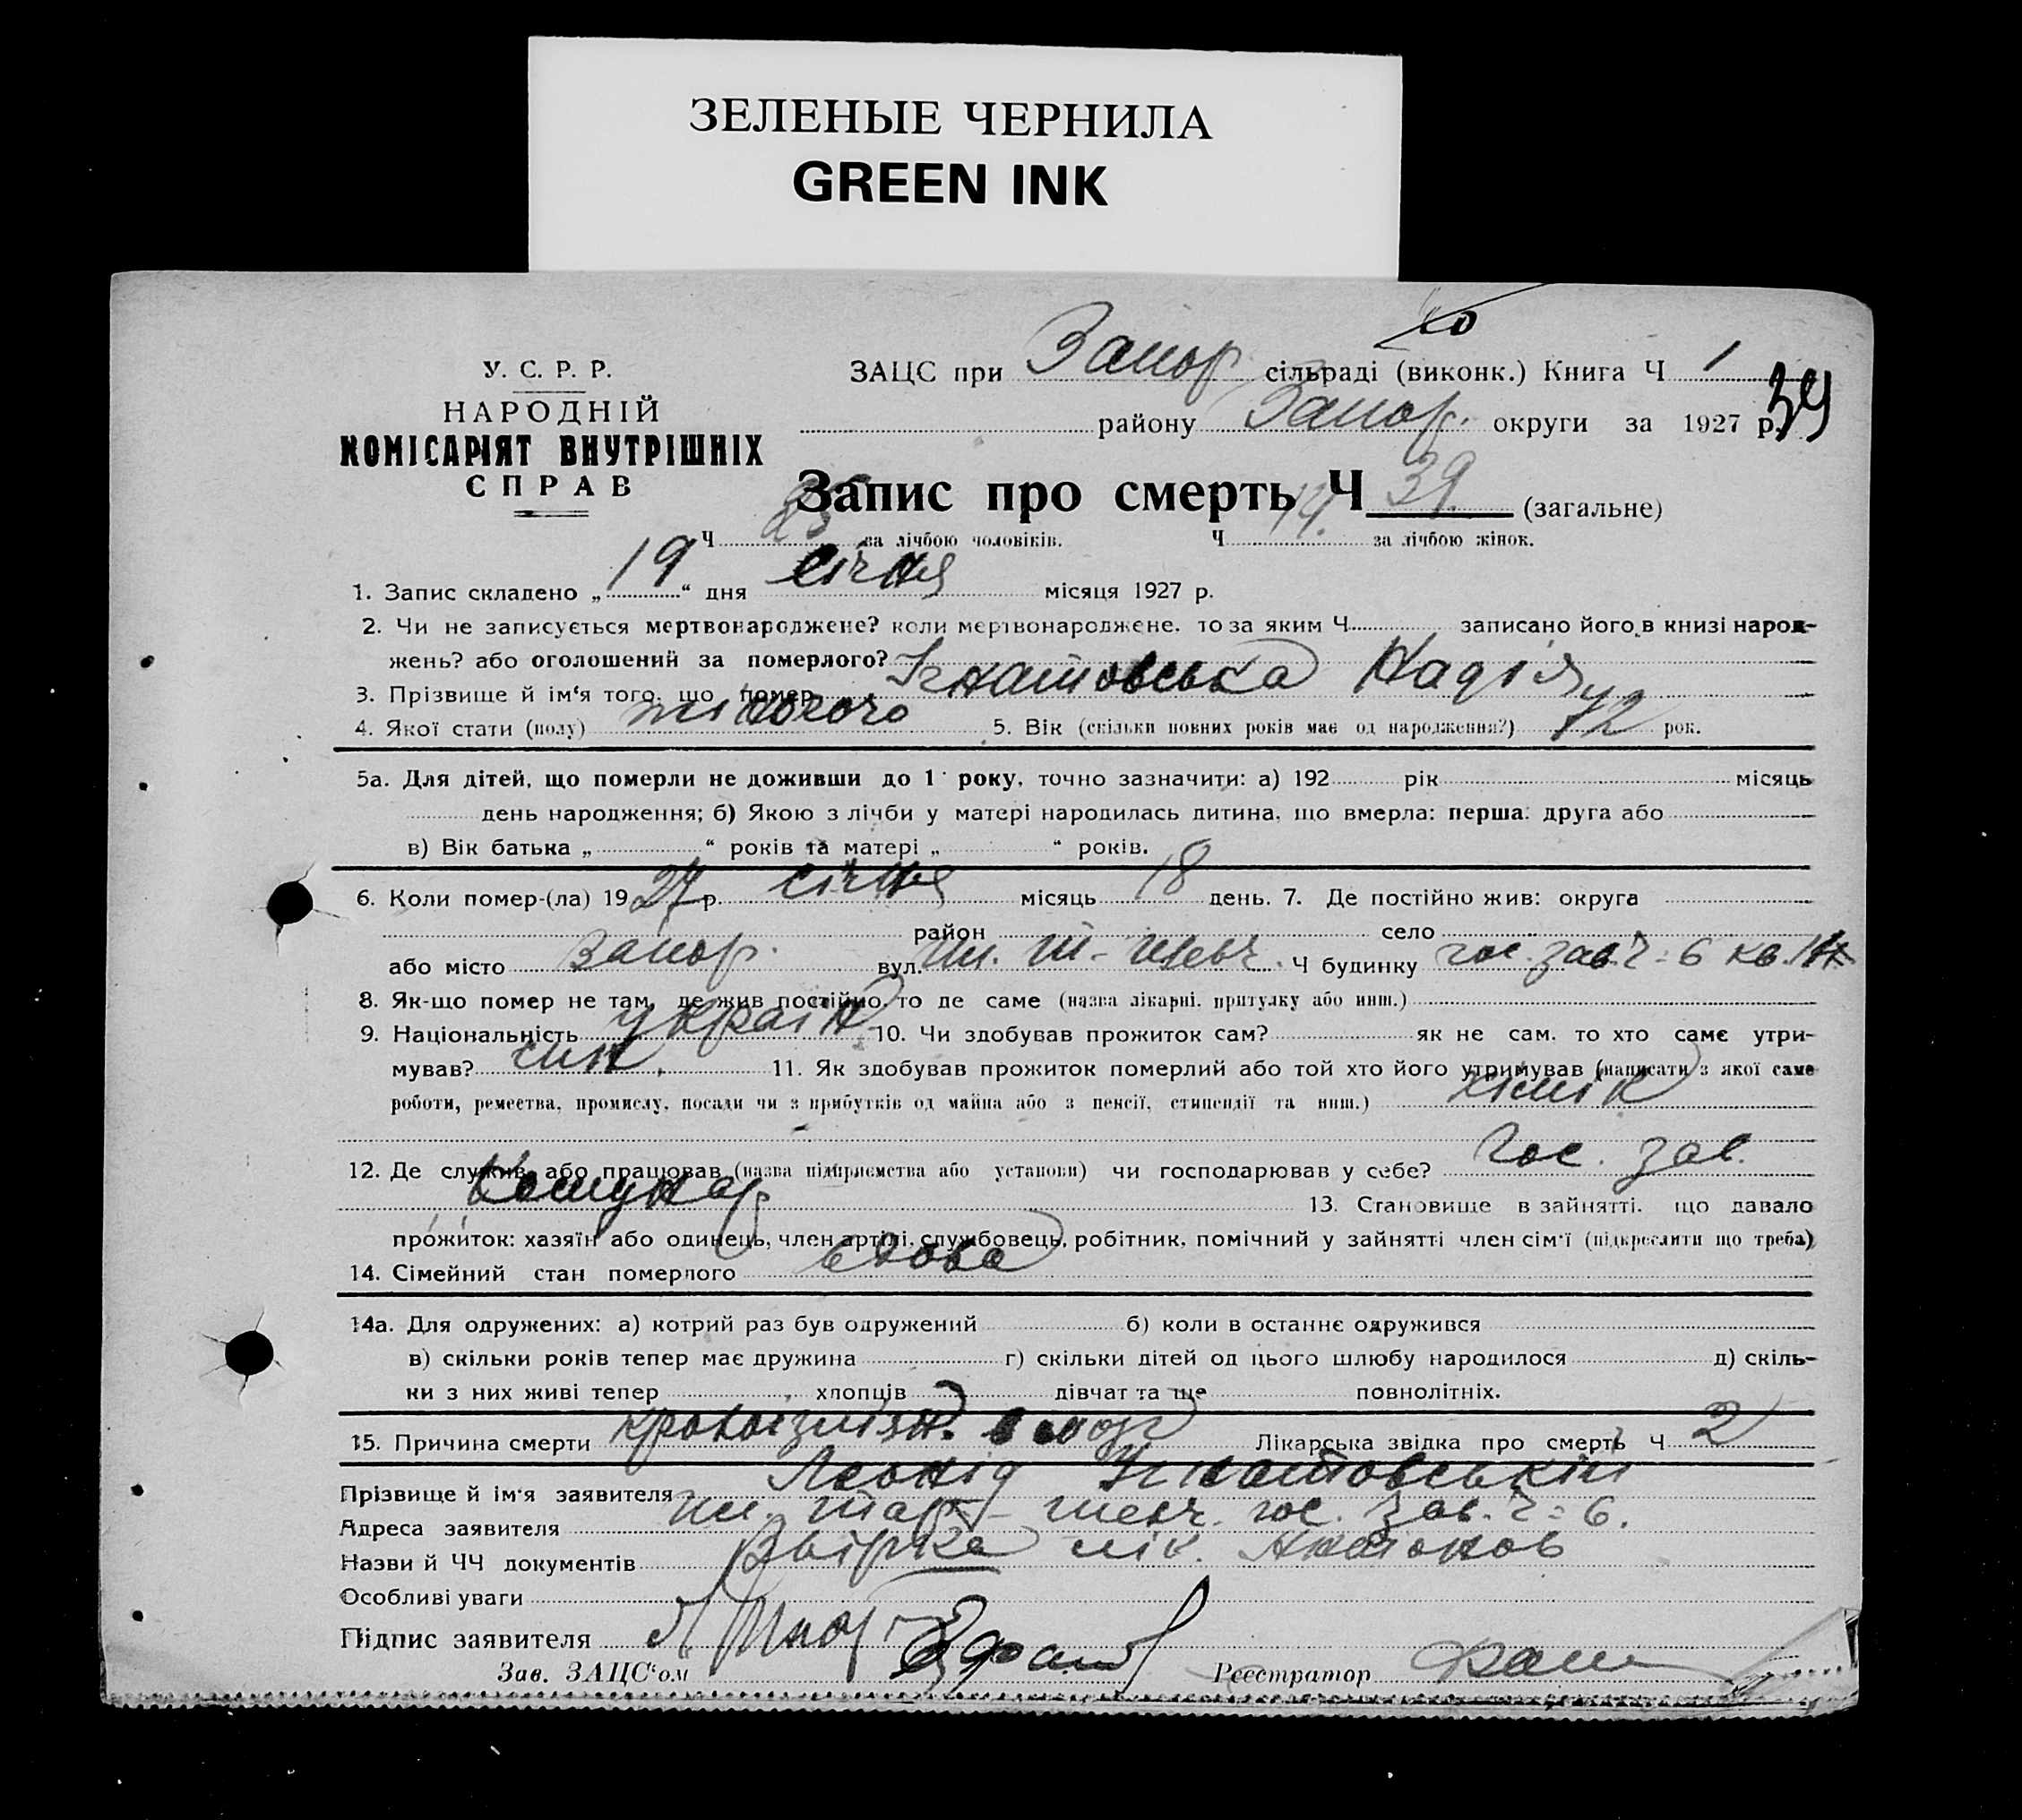 ЗЕЛЕНЫЕ ЧЕРНИЛА
GREEN INK
У. С. Р. Р.
НАРОДНІЙ
КОМІСАРІЯТ ВНУТРІШНІХ
СПРАВ
ЗАЦС при Запор. сільраді (виконк.) Книга Ч 1
району Запор. округи за 1927 р. 39
Запис про смерть Ч 39. (загальне)
Ч 25 за лічбою чоловіків. Ч 14. за лічбою жінок.
1. Запис складено „ 19 “ дня січня місяця 1927 р.
2. Чи не записується мертвонароджене? коли мертвонароджене, то за яким Ч записано його в книзі народ-
жень? або оголошений за померлого?
3. Прізвище й ім‘я того, що помер Ігнатовська Надія
4. Якої стати (полу) жіночого 5. Вік (скільки повних років має од народження?) 72 рок.
5а. Для дітей, що померли не доживши до 1 року, точно зазначити: а) 192 рік місяць
день народження; б) Якою з лічби у матері народилась дитина, що вмерла: перша: друга або
в) Вік батька „ “ років та матері „ “ років.
6. Коли помер-(ла) 1927 р. січня місяць 18 день. 7. Де постійно жив: округа
район село
або місто Запор. вул. Ч будинку гос. зав. Ч 6 кв.
8. Як-що помер не там, де жив постійно, то де саме (назва лікарні, притулку або инш.)
9. Національність україн 10. Чи здобував прожиток сам? як не сам, то хто саме утри-
мував? син. 11. Як здобував прожиток померлий або той хто його утримував (написати з якої саме
роботи, ремества, промислу, посади чи з прибутків од майна або з пенсії, стипендії та инш.) хімік
12. Де служив або працював (назва підприємства або установи) чи господарював у себе? Гос. зав.
Комунар 13. Становище в зайнятті, що давало
прожиток: хазяїн або одинець, член артілі, службовець, робітник, помічний у зайнятті член сім‘ї (підкреслити що треба)
14. Сімейний стан померлого вдова
14а. Для одружених: а) котрий раз був одружений б) коли в останнє одружився
в) скільки років тепер має дружина г) скільки дітей од цього шлюбу народилося д) скіль-
ки з них живі тепер хлопців дівчат та ще повнолітніх.
15. Причина смерти кровоізліян. в мозг Лікарська звідка про смерть Ч 2
Прізвище й ім‘я заявителя Леонід Ігнатовський
Адреса заявителя шевч. гос. зав. Ч 6.
Назви й ЧЧ документів лік.
Особливі уваги
Підпис заявителя
Зав. ЗАЦС‘ом Реєстратор